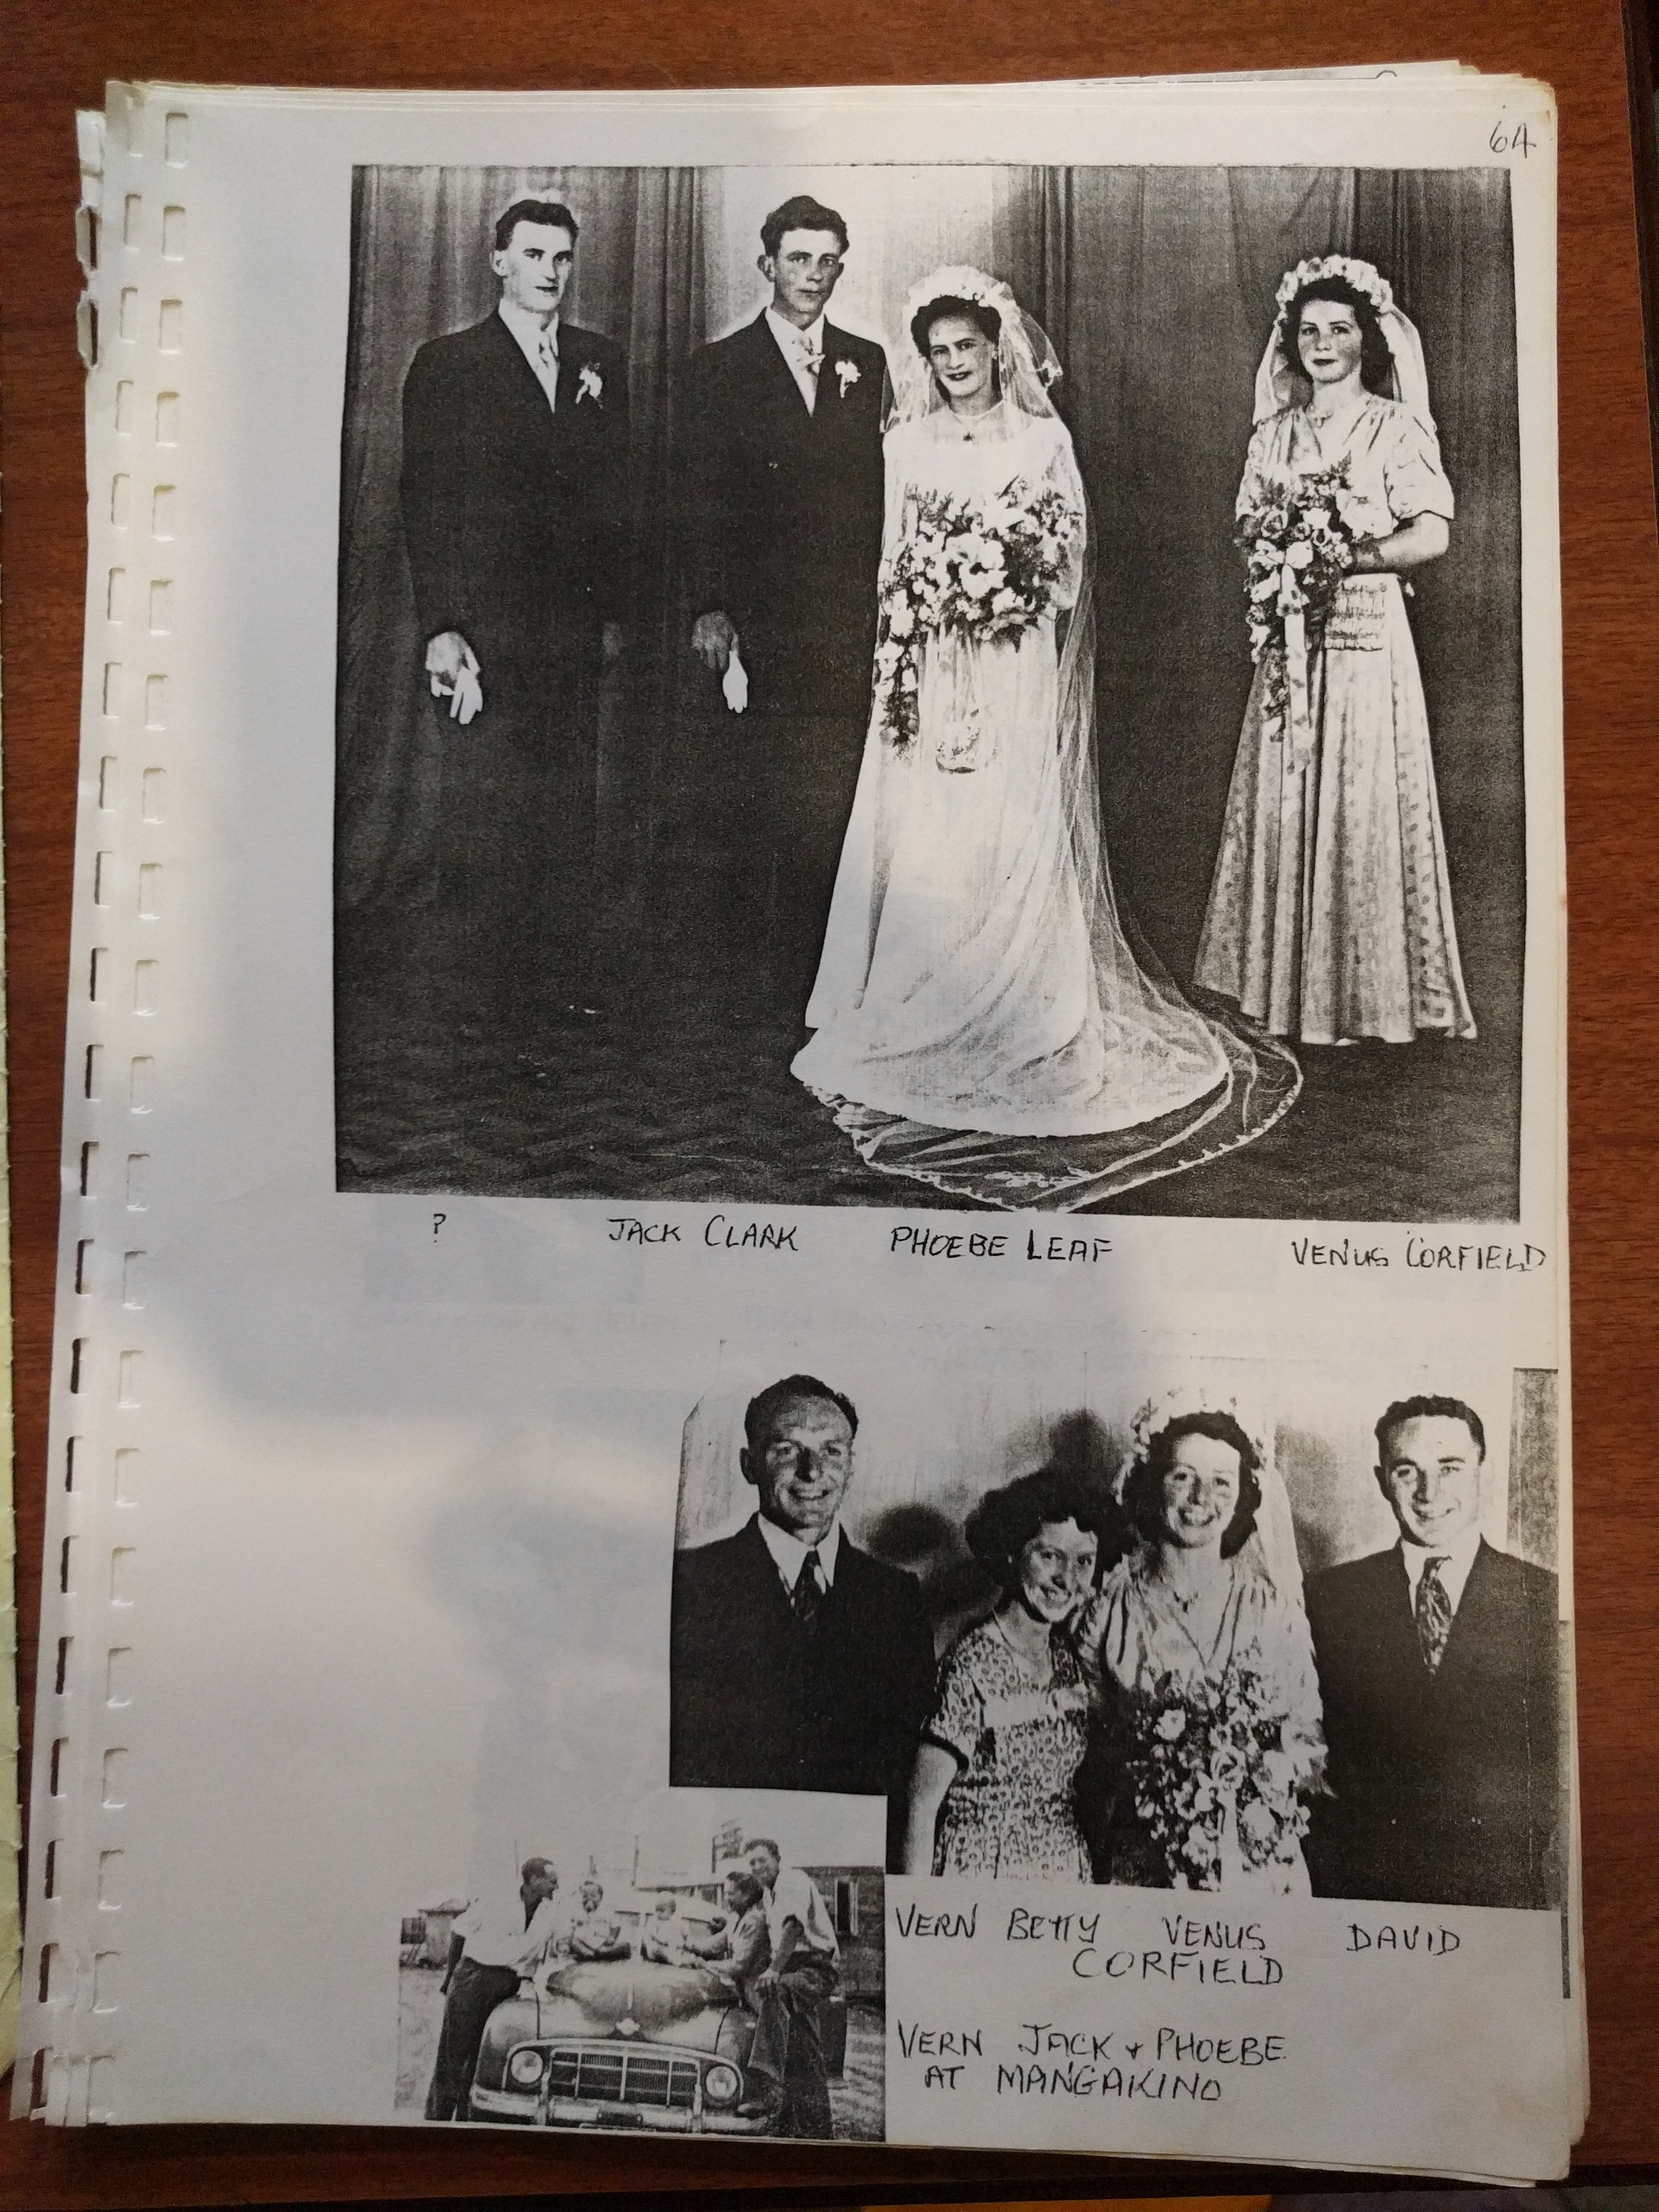 64
? JACK CLARK PHOEBE LEAF VENUS CORFIELD
VERN BETTY VENUS DAVID
CORFIELD
VERN JACK + PHOEBE
AT MANGAKINO